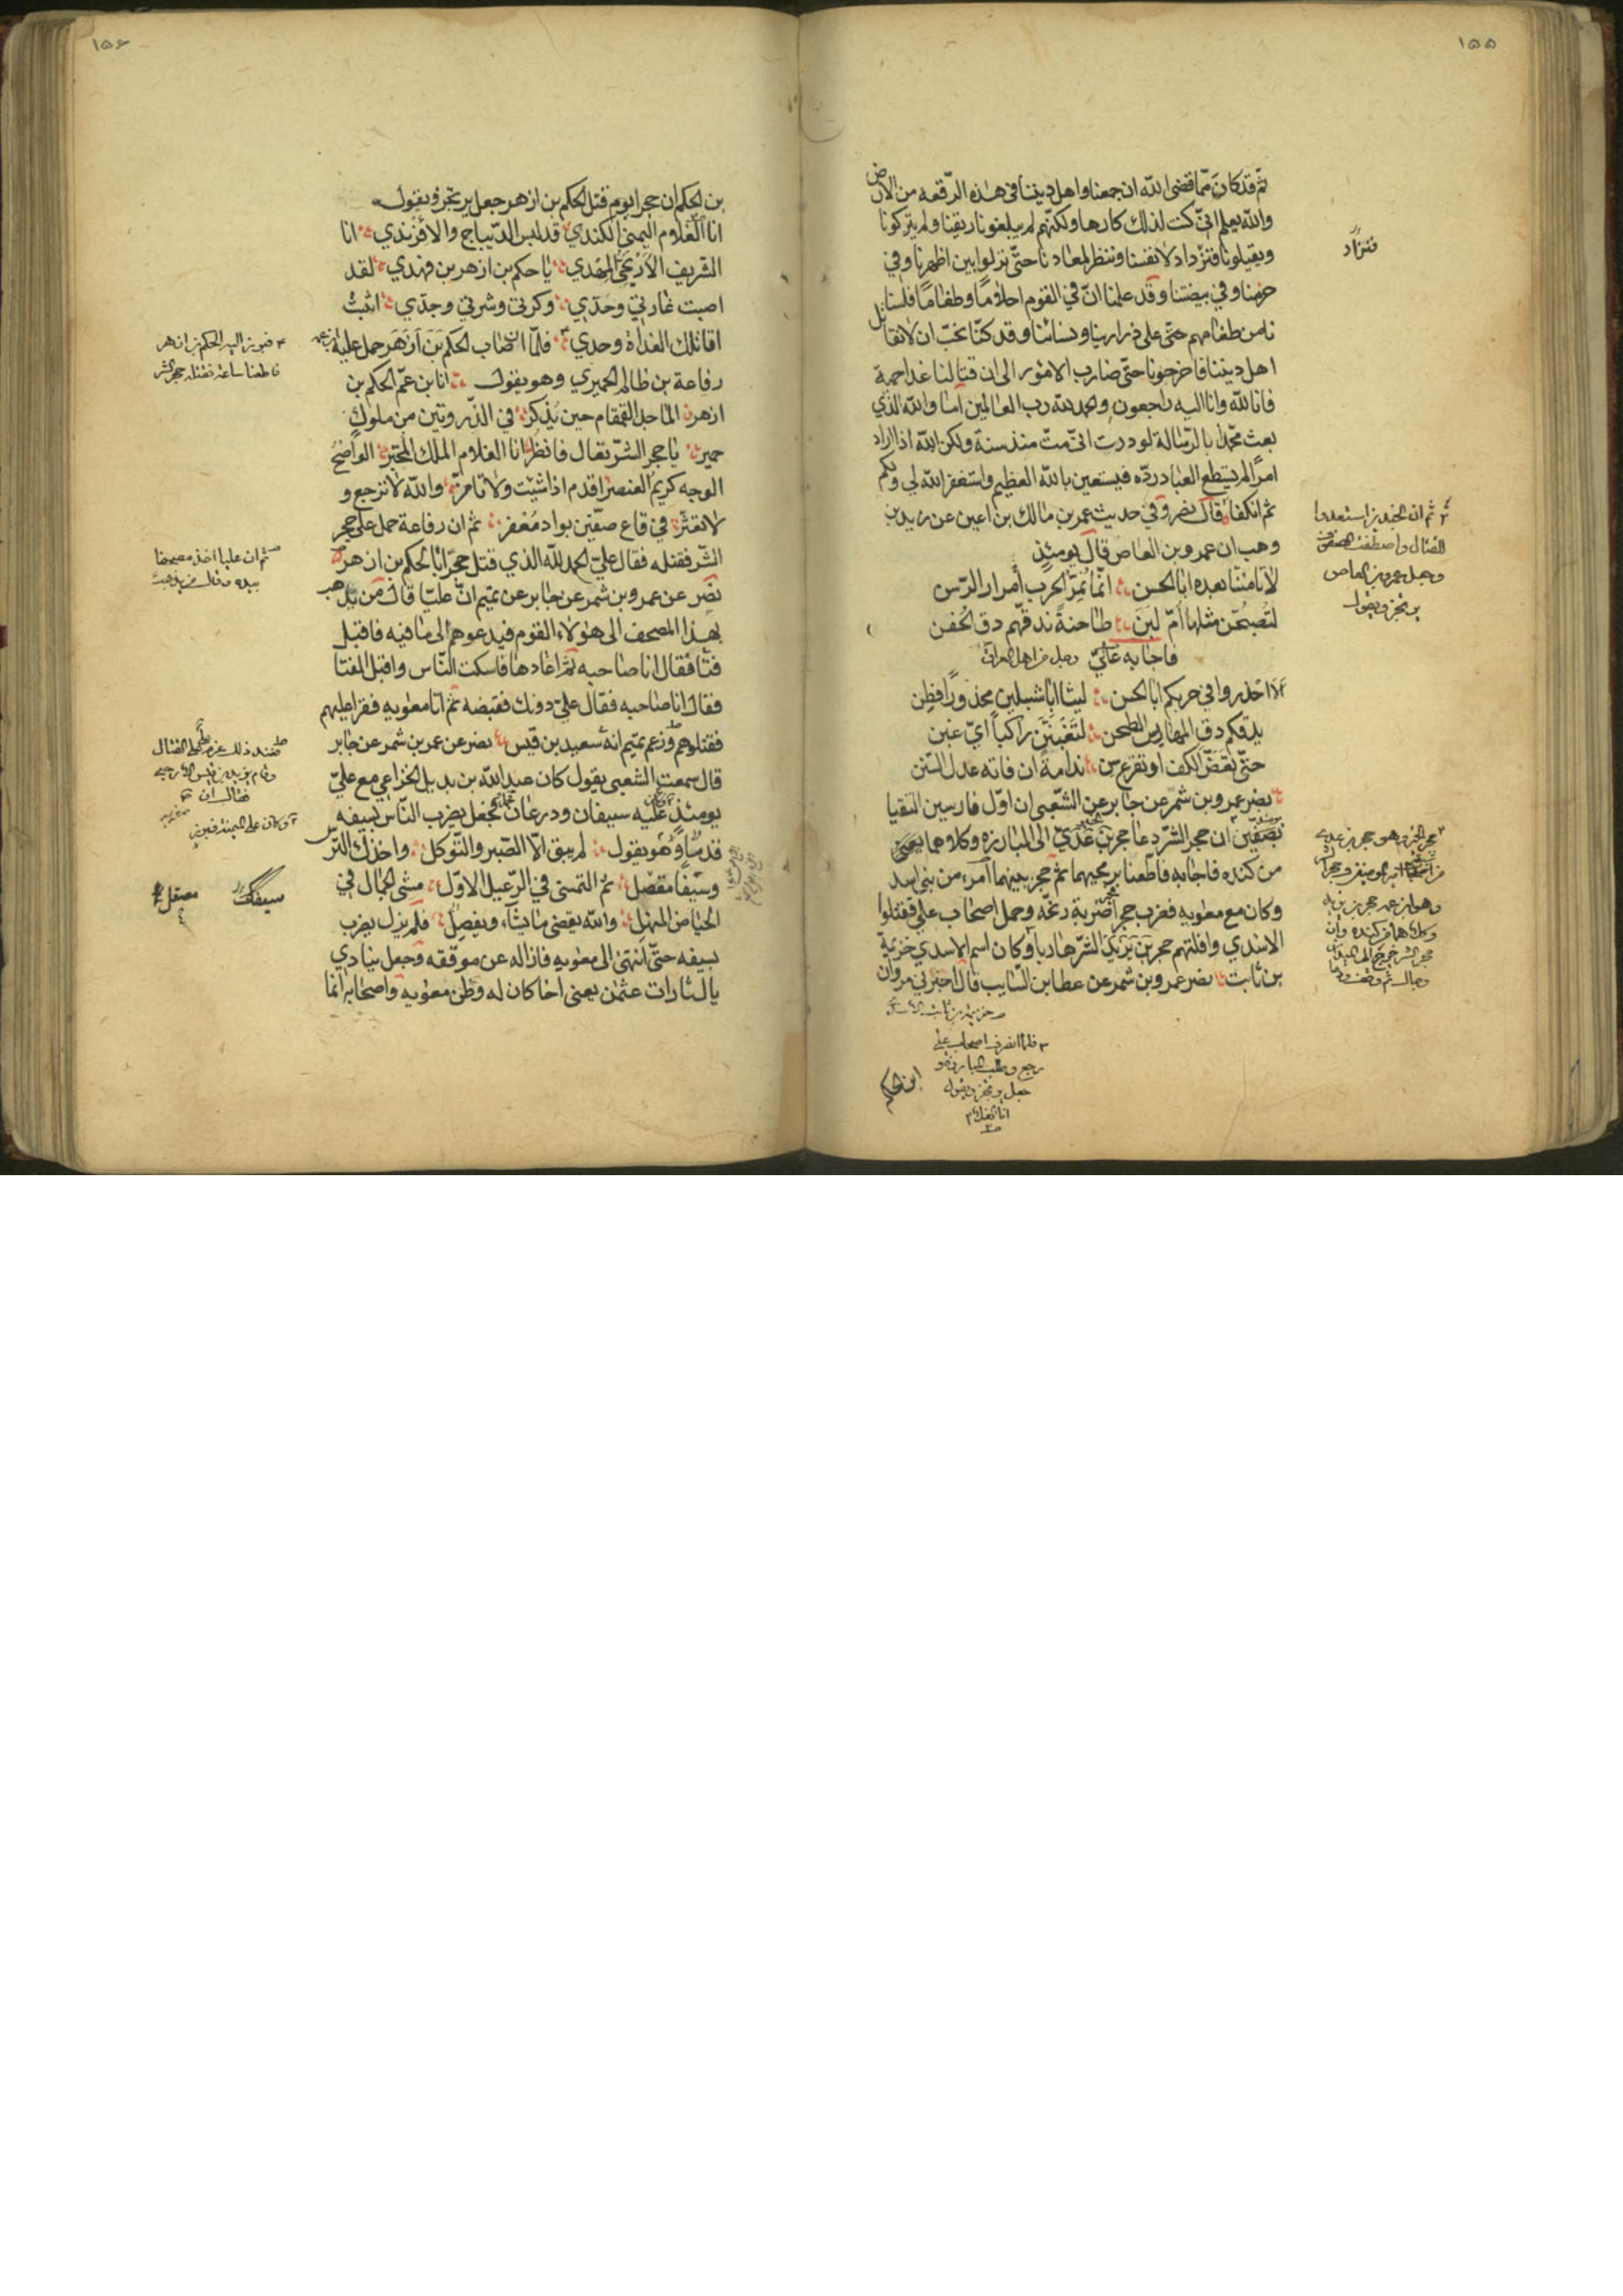 ١٥٥
ثم قد كان مما قضى الله ان جمعنا واهل ديننا فى هذه الرقعه من الارض
والله يعلم انى كنت لذلك كارها ولكنهم لم يبلعونا ريقنا ولم يتركونا
فنزداد لانفسنا وننظر لمعادنا حتى نزلوا بين اظهرنا وفي
حريمنا وفي بيضتنا وقد علمنا ان في القوم احلاما وطغاما فلسنا
نامن طغامهم حتى على ذرارينا ونسائنا وقد كنا نحب ان لا نقاتل
اهل ديننا فاخرجونا حتى صارت الامور الى ان قتالنا غدا حمية
فانا لله وانا اليه راجعون والحمد لله رب العالمين اما والله الذي
بعث محمدا بالرسالة لوددت انى مت منذ سنة ولكن الله اذا اراد
امرا لم يستطع العباد رده فنستعين بالله العظيم واستغفر الله لي ولكم
ثم انكفا قال نصر وفي حديث عمر بن مالك بن اعين عن زيد بن
وهب ان عمرو بن العاص قال يومئذ
لا تامننا بعده ابا الحسن انما نمر الحرب امرار الرسن
لتصبحن مثلها ام لبن طاحنة ندقهم دق الحفن
فاجابه علي رجل من اهل العراق
الا احذروا في حربكم ابا الحسن ليثا ابا شبلين محذورا فطن
يدقكم دق المهاريس الطحن لتغبنن راكبا اي غبن
حتى تعض الكف او تقرع سن ندامة ان فاته عدل السنن
نصر عمرو بن شمر عن جابر عن الشعبى ان اول فارسين التقيا
بصفين ان حجر الشر دعا حجر بن عدي الى المبارزة وكلاهما
من كنده فاجابه فاطعنا برمحيهما ثم حجز بينهما امرء من بنى اسد
وكان مع معويه فضرب حجر ضربة برمحه وحمل اصحاب علي فقتلوا
الاسدي وافلتهم حجر بن يزيد الشر هاربا وكان اسم الاسدي خزيمة
بن ثابت نصر عمرو بن شمر عن عطا بن السايب قال اخبرني مروان
فنزاد
ثم ان الجند بن استعدوا
للقتال واصطفت الصفوف
وجعل عمرو بن العاص
يرتجز ويقول
خزيمة بن ثابت
فلما انصرف اصحاب علي
رجع وطلب المبارزة و
جعل يرتجز ويقول
انا الغلام
بن الحكم
١٥٦
بن الحكم ان حجرا يوم قتل الحكم بن ازهر جعل يرتجز ويقول
انا الغلام اليمني الكندي قد لبس الديباج والافرندي انا
الشريف الاريحي المهدي يا حكم بن ازهر بن فهدي لقد
اصبت غارتي وحدي وكرتي وشرتي وجدي اثبت
اقاتلك الغداة وحدي فلما ان اصاب الحكم بن ازهر حمل عليه
رفاعة بن ظالم الحميري وهو يقول انا بن عم الحكم بن
ازهر الماجد القمقام حين يذكر في الذروتين من ملوك
حمير يا حجر الشر تعال فانظر انا الغلام الملك المحبر الواضح
الوجه كريم العنصر اقدم اذا شئت ولا تاخر والله لا ترجع و
لا تعثر في قاع صفين بواد معفر ثم ان رفاعة حمل على حجر
الشر فقتله فقال علي الحمد لله الذي قتل حجرا بالحكم بن ازهر
نصر عن عمرو بن شمر عن جابر عن تميم ان عليا قال من يذهب
بهذا المصحف الى هؤلاء القوم فيدعوهم الى ما فيه فاقبل
فتا فقال انا صاحبه ثم اعادها فاسكت الناس واقبل الفتا
فقال انا صاحبه فقال علي دونك فقبضه ثم اتا معويه فقرا عليهم
فقتلوهم وزعم تميم انه سعيد بن قيس نصر عن عمر بن شمر عن جابر
قال سمعت الشعبى يقول كان عبد الله بن بديل الخزاعي مع علي
يومئذ عليه سيفان ودرعان فجعل يضرب الناس بسيفه
قدما وهو يقول لم يبق الا الصبر والتوكل واخذك الترس
وسيفا مقصل ثم التمشى في الرعيل الاول مشى الجمال في
الحياض المنهل والله يقضى ما يشاء ويفصل فلم يزل يضرب
بسيفه حتى انتهى الى معويه فازاله عن موقفه وجعل ينادي
يا لثارات عثمن يعنى اخا كان له وظن معويه واصحابه انما
فبرز اليه الحكم بن ازهر
فاطعنا ساعة فقتله حجر الشر
ثم ان عليا اخذ مصحفا
بيده وقال من يذهب
فعند ذلك عزم علي على القتال
وقام يزيد بن قيس الارحبي
فقال ان
وكان على الميمنة فبرز
سيفك
مصقل